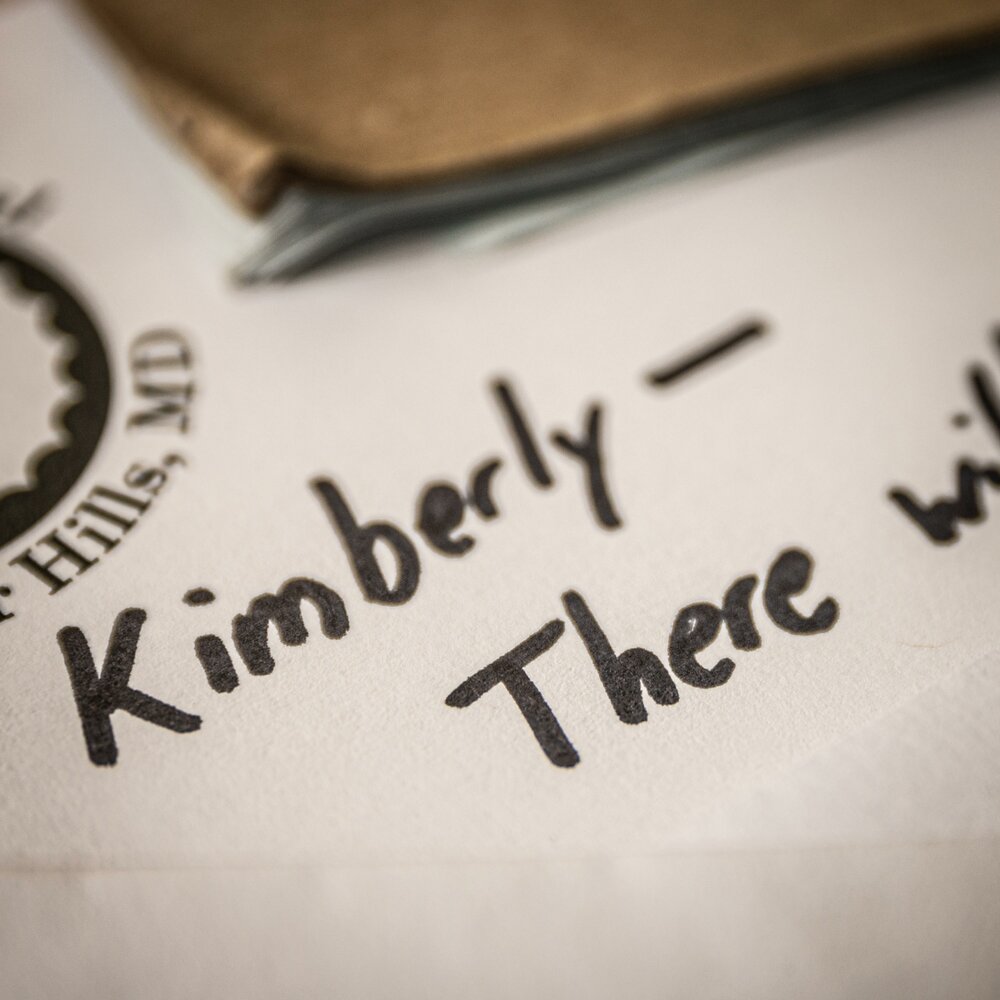 Hills, MD
Kimberly —
There